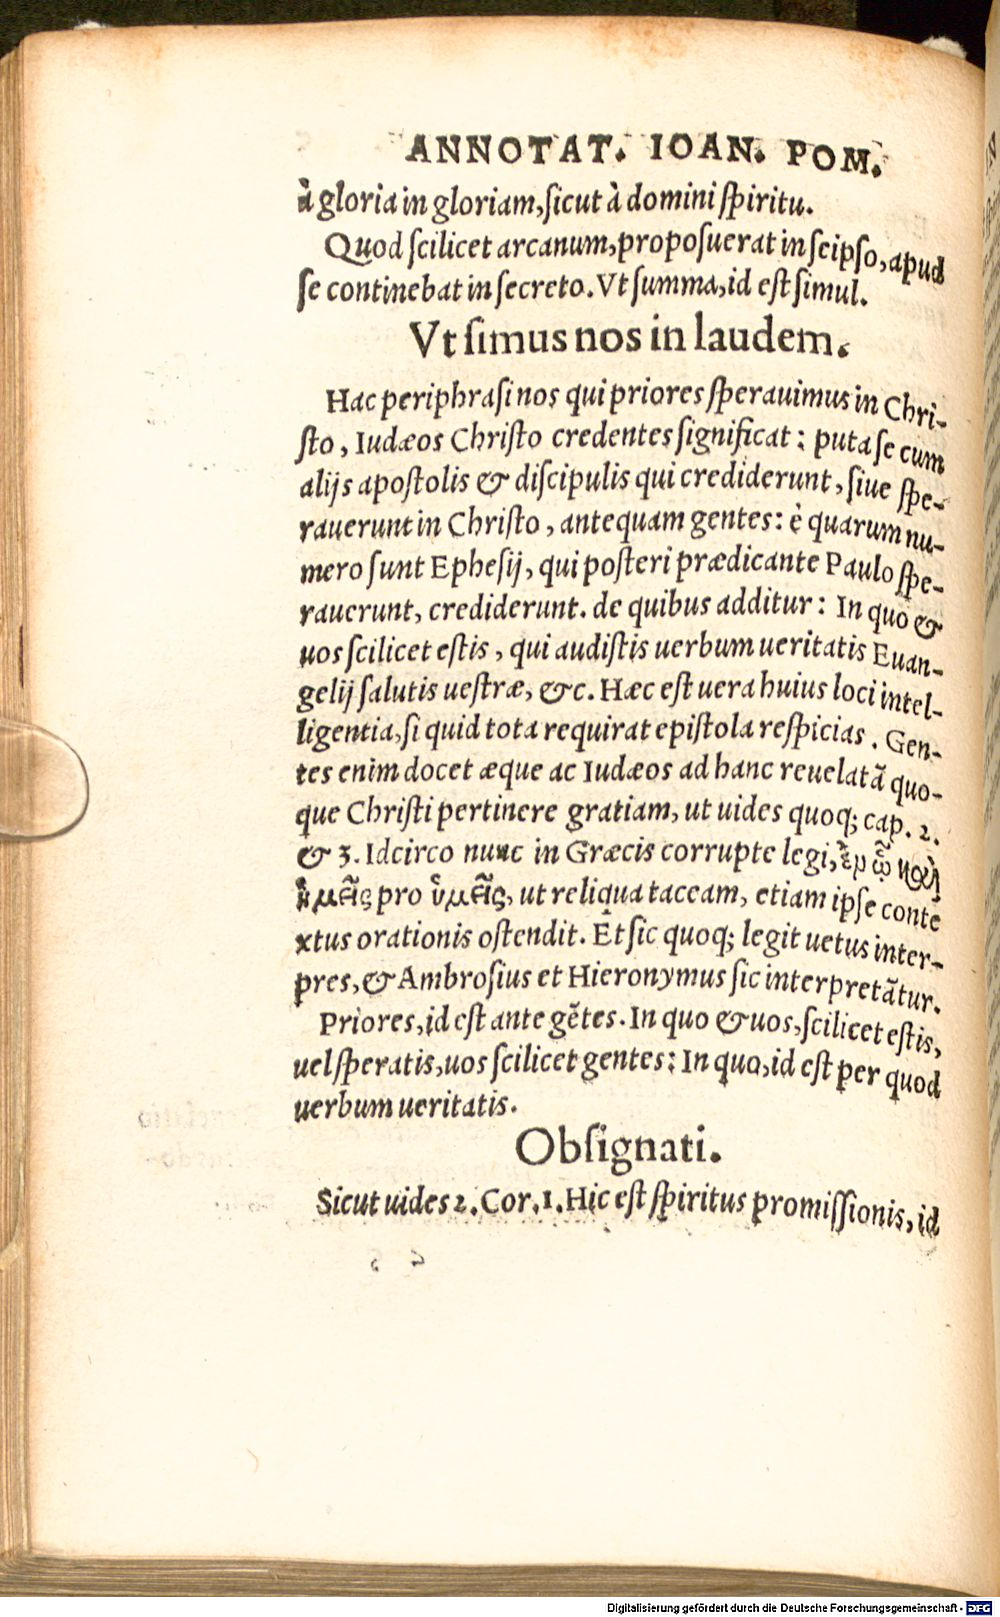 ANNOTAT. IOAN. POM.
à gloria in gloriam, sicut à domini spiritu.
Quod scilicet arcanum, proposuerat in seipso, apud
se continebat in secreto. Vt summa, id est simul.
Vt simus nos in laudem.
Hac periphrasi nos qui priores sperauimus in Chri-
sto, Iudæos Christo credentes significat: puta se cum
alijs apostolis & discipulis qui crediderunt, siue spe-
rauerunt in Christo, antequam gentes: è quarum nu-
mero sunt Ephesij, qui posteri prædicante Paulo spe-
rauerunt, crediderunt. de quibus additur: In quo &
uos scilicet estis, qui audistis uerbum ueritatis Euan-
gelij salutis uestræ, &c. Hæc est uera huius loci intel-
ligentia, si quid tota requirat epistola respicias. Gen-
tes enim docet æque ac Iudæos ad hanc reuelatã quo-
que Christi pertinere gratiam, ut uides quoq; cap. 2.
& 3. Idcirco nunc in Græcis corrupte legi, ἐν ᾧ καὶ
ἡμᾶς pro ὑμᾶς, ut reliqua taceam, etiam ipse conte
xtus orationis ostendit. Et sic quoq; legit uetus inter-
pres, & Ambrosius et Hieronymus sic interpretãtur.
Priores, id est ante gẽtes. In quo & uos, scilicet estis,
uel speratis, uos scilicet gentes: In quo, id est per quod
uerbum ueritatis.
Obsignati.
Sicut uides 2. Cor. 1. Hic est spiritus promissionis, id
Digitalisierung gefördert durch die Deutsche Forschungsgemeinschaft - DFG